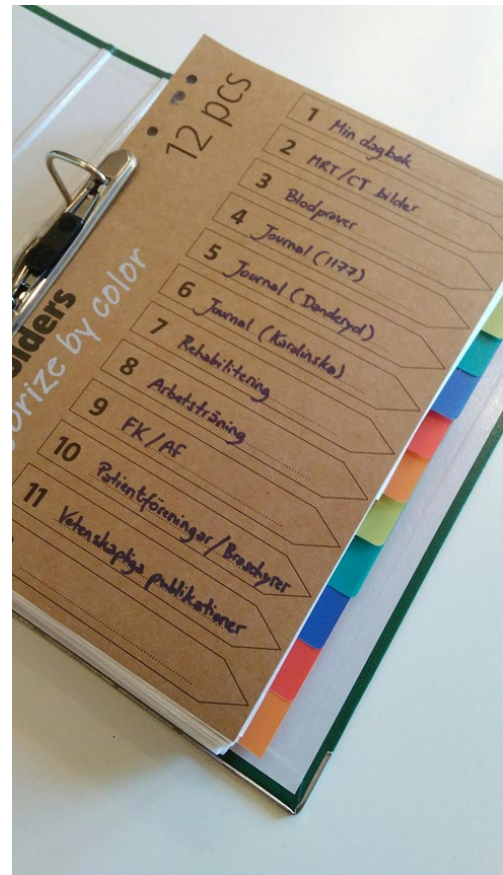 12 pcs
olders
orize by color
1 Min dagbok
2 MRT/CT bilder
3 Blodprover
4 Journal (1177)
5 Journal (Danderyd)
6 Journal (Karolinska)
7 Rehabilitering
8 Arbetsträning
9 FK/AF
10 Patientföreningar/Broschyrer
11 Vetenskapliga publikationer